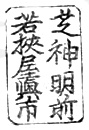 芝神明前
若狭屋與市